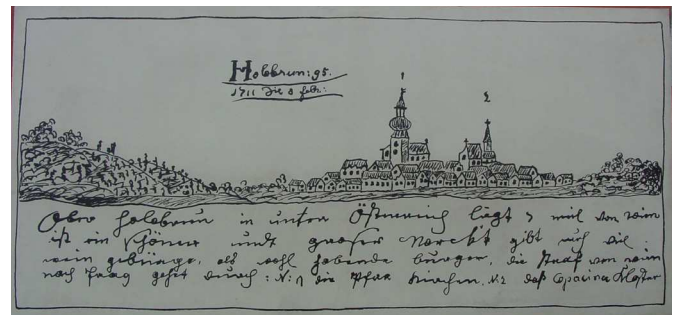 Holebrun: 95.
1711 die 8 febr:
1
2
Ober holebrun in unter Österreich liegt 7 meil von wien
ist ein schöner undt großer Marckt gibt auch viel
wein gebürge, als wohl habende burger, die straß von wien
nach Prag gehet durch: N: 1 die Pfar Kirchen. N: 2 daß Capuciner Kloster